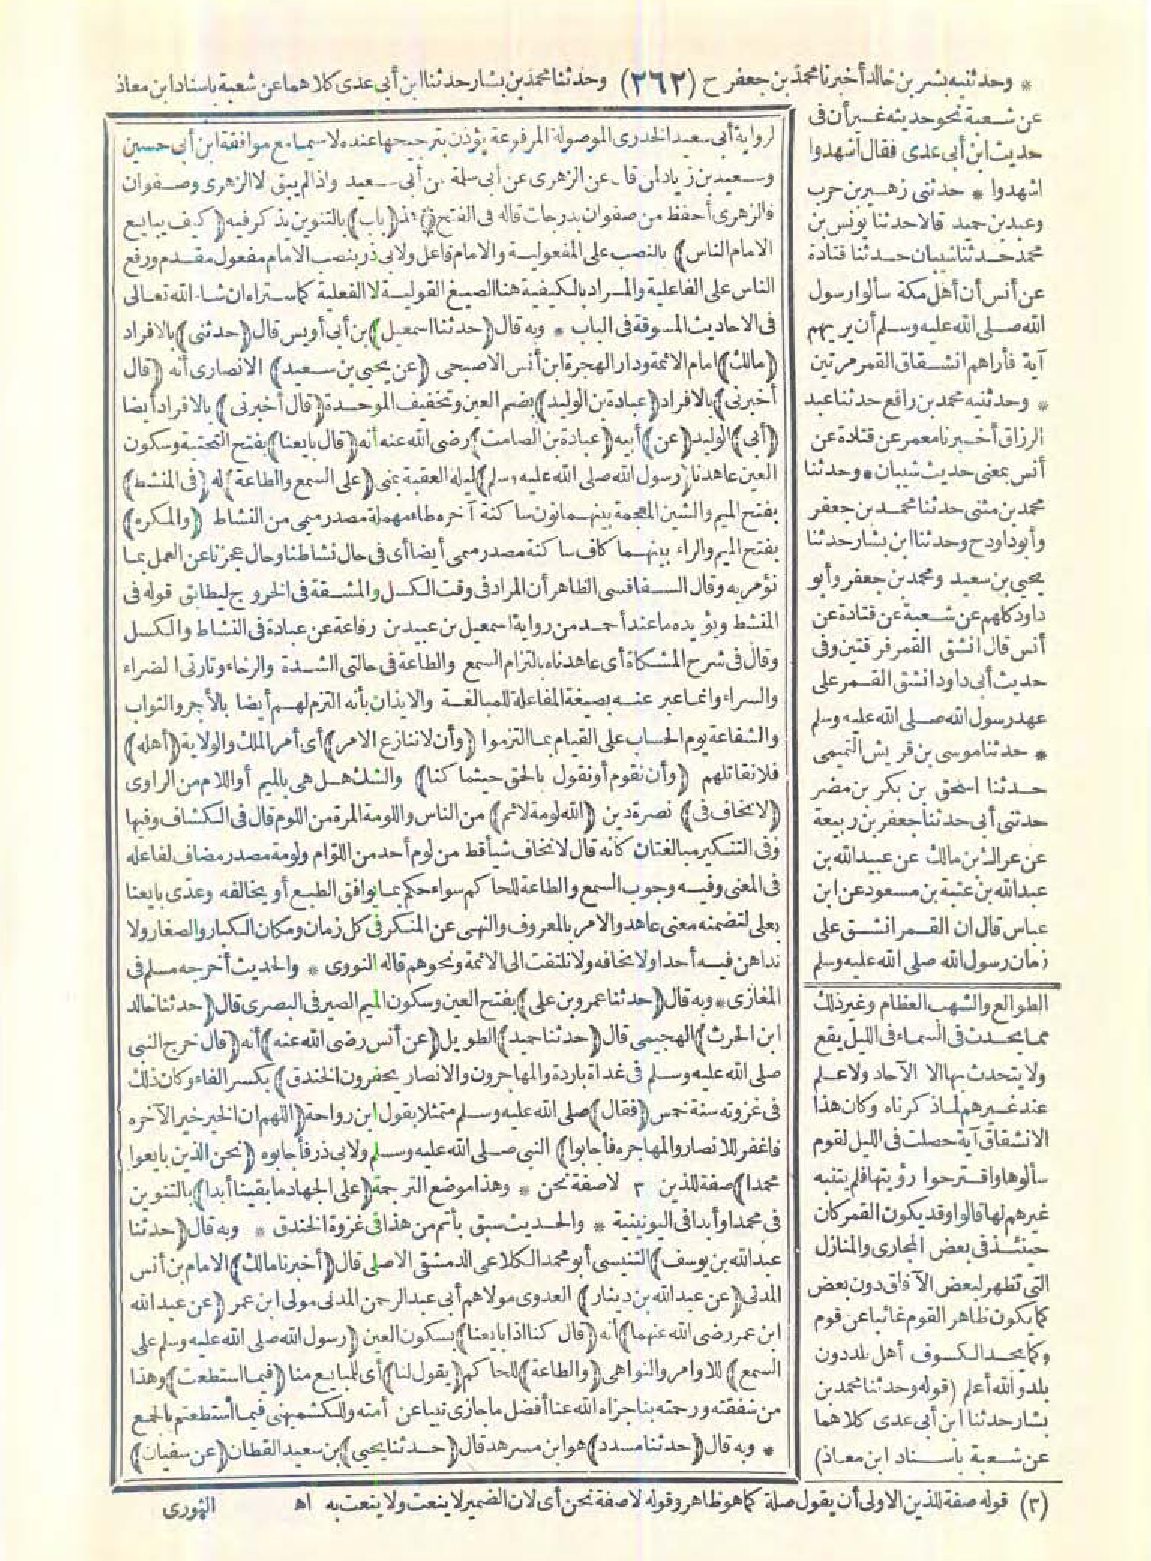 * وحدثنيه بشر بن خالد أخبرنا محمد بن جعفر ح (٢٦٢) وحدثنا محمد بن بشار حدثنا ابن أبي عدى كلاهما عن شعبة باسناد ابن معاذ
عن شعبة نحو حديثه غير أن فى
حديث ابن أبى عدى فقال اشهدوا
اشهدوا * حدثنى زهير بن حرب
وعبد بن حميد قالا حدثنا يونس بن
محمد حدثنا شيبان حدثنا قتادة
عن أنس أن أهل مكة سألوا رسول
الله صلى الله عليه وسلم أن يريهم
آية فأراهم انشقاق القمر مرتين
* وحدثنيه محمد بن رافع حدثنا عبد
الرزاق أخبرنا معمر عن قتادة عن
أنس بمعنى حديث شيبان * وحدثنا
محمد بن مثنى حدثنا محمد بن جعفر
وأبو داود ح وحدثنا ابن بشار حدثنا
يحيى بن سعيد ومحمد بن جعفر وأبو
داود كلهم عن شعبة عن قتادة عن
أنس قال انشق القمر فرقتين وفى
حديث أبى داود انشق القمر على
عهد رسول الله صلى الله عليه وسلم
* حدثنا موسى بن قريش التميمى
حدثنا اسحق بن بكر بن مضر
حدثنى أبى حدثنا جعفر بن ربيعة
عن عراك بن مالك عن عبيد الله بن
عبد الله بن عتبة بن مسعود عن ابن
عباس قال ان القمر انشق على
زمان رسول الله صلى الله عليه وسلم
الطوالع والشهب العظام وغير ذلك
مما يحدث فى السماء فى الليل يقع
ولا يتحدث بها الا الآحاد ولا علم
عند غيرهم لما ذكرناه وكان هذا
الانشقاق آية حصلت فى الليل لقوم
سألوها واقترحوا رؤيتها فلم يتنبه
غيرهم لها قالوا وقد يكون القمر كان
حينئذ فى بعض المجارى والمنازل
التى تظهر لبعض الآفاق دون بعض
كما يكون ظاهر القوم غائبا عن قوم
وكما يجد الكسوف أهل بلد دون
بلد والله أعلم (قوله وحدثنا محمد بن
بشار حدثنا ابن أبى عدى كلاهما
عن شعبة باسناد ابن معاذ)
لرواية أبى سعيد الخدرى الموصولة المرفوعة يؤذن بترجيحها عنده لا سيما مع موافقة ابن أبى حسين
وسعيد بن زياد لمن قال عن الزهرى عن أبى سلمة عن أبى سعيد واذا لم يبق الا الزهرى وصفوان
فالزهرى أحفظ من صفوان بدرجات قاله فى الفتح (باب) بالتنوين يذكر فيه (كيف يبايع
الامام الناس) بالنصب على المفعولية والامام فاعل ولابى ذر بنصب الامام مفعول مقدم ورفع
الناس على الفاعلية والمراد بالكيفية هنا الصيغ القولية لا الفعلية كما ستراه ان شاء الله تعالى
فى الاحاديث المسوقة فى الباب * وبه قال (حدثنا اسمعيل) بن أبى أويس قال (حدثنى) بالافراد
(مالك) امام الائمة ودار الهجرة ابن أنس الاصبحى (عن يحيى بن سعيد) الانصارى أنه (قال
أخبرنى) بالافراد (عبادة بن الوليد) بضم العين وتخفيف الموحدة (قال أخبرنى) بالافراد أيضا
(أبى) الوليد (عن) أبيه (عبادة بن الصامت) رضى الله عنه أنه (قال بايعنا) بفتح التحتية وسكون
العين عاهدنا (رسول الله صلى الله عليه وسلم) ليلة العقبة بمنى (على السمع والطاعة) له (فى المنشط)
بفتح الميم والشين المعجمة بينهما نون ساكنة آخره طاء مهملة مصدر ميمى من النشاط (والمكره)
بفتح الميم والراء بينهما كاف ساكنة مصدر ميمى أيضا أى فى حال نشاطنا وحال عجزنا عن العمل بما
نؤمر به وقال السفاقسى الظاهر أن المراد فى وقت الكسل والمشقة فى الخروج ليطابق قوله فى
المنشط ويؤيده ما عند أحمد من رواية اسمعيل بن عبيد بن رفاعة عن عبادة فى النشاط والكسل
وقال فى شرح المشكاة أى عاهدناه بالتزام السمع والطاعة فى حالتى الشدة والرخاء وتارتى الضراء
والسراء وانما عبر عنه بصيغة المفاعلة للمبالغة والايذان بأنه التزم لهم أيضا بالأجر والثواب
والشفاعة يوم الحساب على القيام بما التزموا (وأن لا ننازع الامر) أى أمر الملك والولاية (أهله)
فلا نقاتلهم (وأن نقوم أو نقول بالحق حيثما كنا) والشك هل هى بالميم أو اللام من الراوى
(لا نخاف فى) نصرة دين (الله لومة لائم) من الناس واللومة المرة من اللوم قال فى الكشاف وفيها
وفى التنكير مبالغتان كأنه قال لا نخاف شيأ قط من لوم أحد من اللوام ولومة مصدر مضاف لفاعله
فى المعنى وفيه وجوب السمع والطاعة للحاكم سواء حكم بما يوافق الطبع أو يخالفه وعدى بايعنا
بعلى لتضمنه معنى عاهد والامر بالمعروف والنهى عن المنكر فى كل زمان ومكان الكبار والصغار ولا
نداهن فيه أحدا ولا نخافه ولا نلتفت الى الائمة ونحوهم قاله النووى * والحديث أخرجه مسلم فى
المغازى * وبه قال (حدثنا عمرو بن على) بفتح العين وسكون الميم الصيرفى البصرى قال (حدثنا خالد
ابن الحرث) الهجيمى قال (حدثنا حميد) الطويل (عن أنس رضى الله عنه) أنه (قال خرج النبى
صلى الله عليه وسلم فى غداة باردة والمهاجرون والانصار يحفرون الخندق) بكسر الفاء وكان ذلك
فى غزوته سنة خمس (فقال) صلى الله عليه وسلم متمثلا بقول ابن رواحة (اللهم ان الخير خير الآخره
فاغفر للانصار والمهاجره فأجابوا) النبى صلى الله عليه وسلم ولابى ذر فأجابوه (نحن الذين بايعوا
محمدا) صفة للذين ٣ لا صفة نحن * وهذا موضع الترجمة (على الجهاد ما بقينا أبدا) بالتنوين
فى محمدا وأبدا فى اليونينية * والحديث سبق بأتم من هذا فى غزوة الخندق * وبه قال (حدثنا
عبد الله بن يوسف) التنيسى أبو محمد الكلاعى الدمشقى الاصلى قال (أخبرنا مالك) الامام بن أنس
المدنى (عن عبد الله بن دينار) العدوى مولاهم أبى عبد الرحمن المدنى مولى ابن عمر (عن عبد الله
ابن عمر رضى الله عنهما) أنه (قال كنا اذا بايعنا) بسكون العين (رسول الله صلى الله عليه وسلم على
السمع) للاوامر والنواهى (والطاعة) للحاكم (يقول لنا) أى للمبايع منا (فيما استطعت) وهذا
من شفقته ورحمته بنا جزاه الله عنا أفضل ما جازى نبيا عن أمته وللكشميهنى فيما استطعتم بالجمع
* وبه قال (حدثنا مسدد) هو ابن مسرهد قال (حدثنا يحيى) بن سعيد القطان (عن سفيان)
(٣) قوله صفة للذين الاولى أن يقول صلة كما هو ظاهر وقوله لا صفة نحن أى لان الضمير لا ينعت ولا ينعت به اه
الثورى